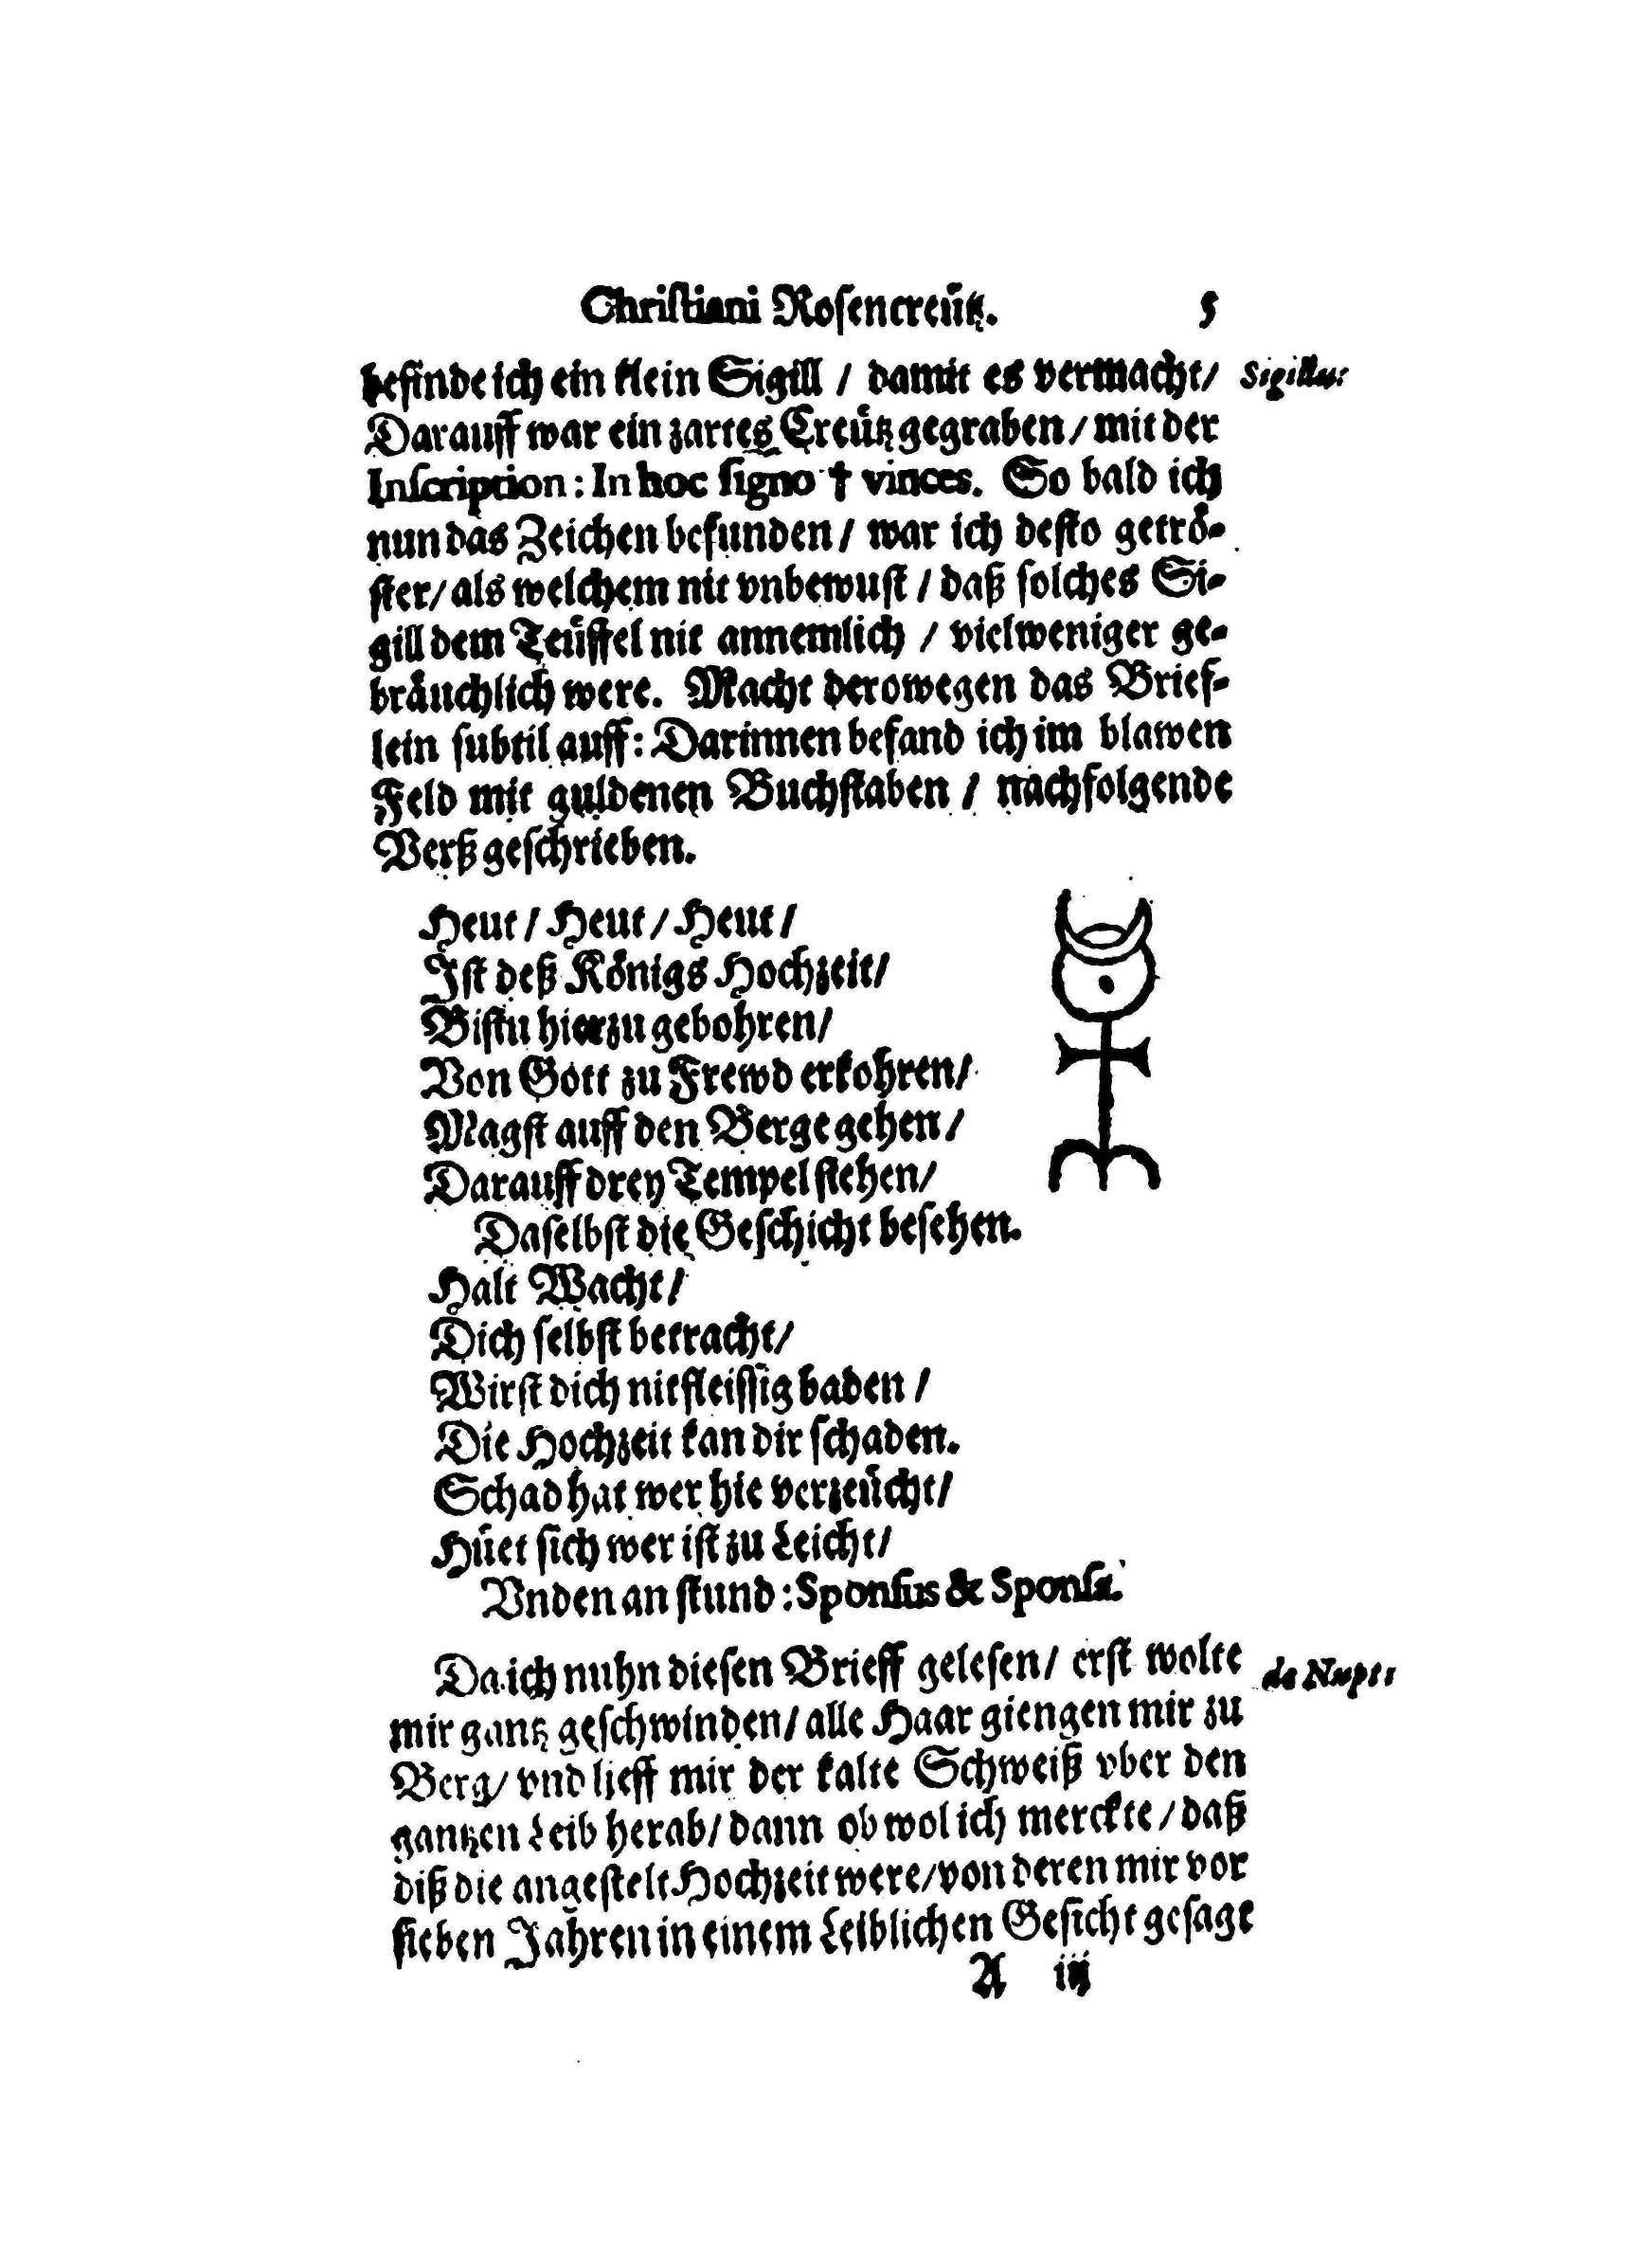 Christiani Rosencreütz. 5
befinde ich ein klein Sigill / damit es vermacht/ Sigillu:
Darauff war ein zartes Creütz gegraben / mit der
Inscription: In hoc signo † vinces. So bald ich
nun das Zeichen befunden / war ich desto getrö-
ster/ als welchem nit vnbewust / daß solches Si-
gill dem Teüffel nit annemlich / vielweniger ge-
bräuchlich were. Macht derowegen das Brief-
lein subtil auff: Darinnen befand ich im blawen
Feld mit guldenen Buchstaben / nachfolgende
Verß geschrieben.
Heut / Heut / Heut /
Ist deß Königs Hochzeit/
Bistu hierzu gebohren/
Von Gott zu Frewd erkohren/
Magst auff den Berge gehen /
Darauff drey Tempel stehen/
Daselbst die Geschicht besehen.
Halt Wacht/
Dich selbst betracht/
Wirst dich nit fleissig baden /
Die Hochzeit kan dir schaden.
Schad hat wer hie verzeücht/
Hüet sich wer ist zu Leicht/
Vnden an stund: Sponsus & Sponsa.
Da ich nuhn diesen Brieff gelesen/ erst wolte de Nupt:
mir gantz geschwinden/ alle Haar giengen mir zu
Berg/ vnd lieff mir der kalte Schweiß vber den
gantzen Leib herab/ dann ob wol ich merckte / daß
diß die angestelt Hochzeit were/ von deren mir vor
sieben Jahren in einem Leiblichen Gesicht gesagt
A iij